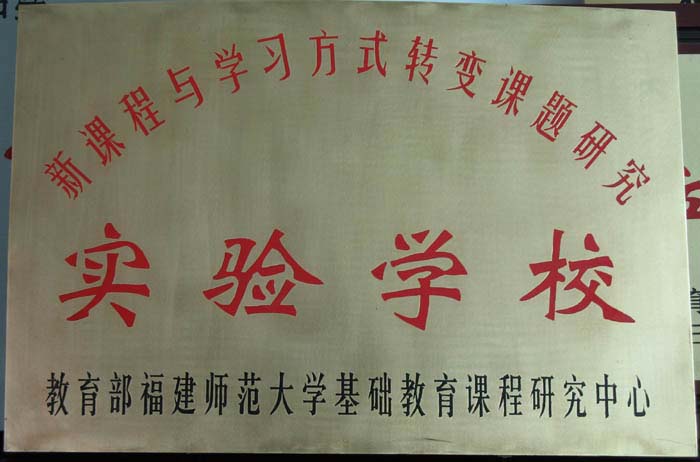 新课程与学习方式转变课题研究
实验学校
教育部福建师范大学基础教育课程研究中心